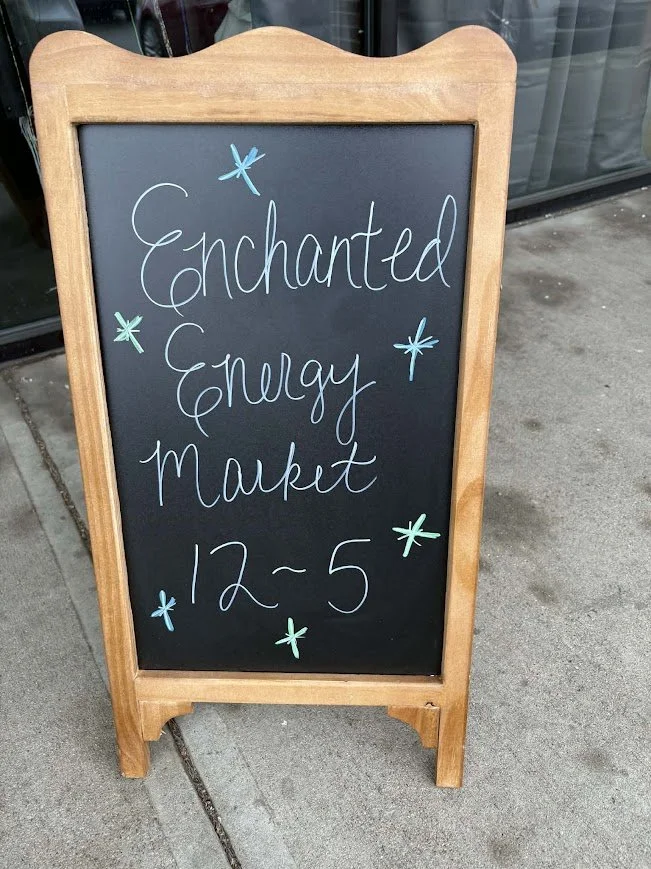 Enchanted
Energy
Market
12~5